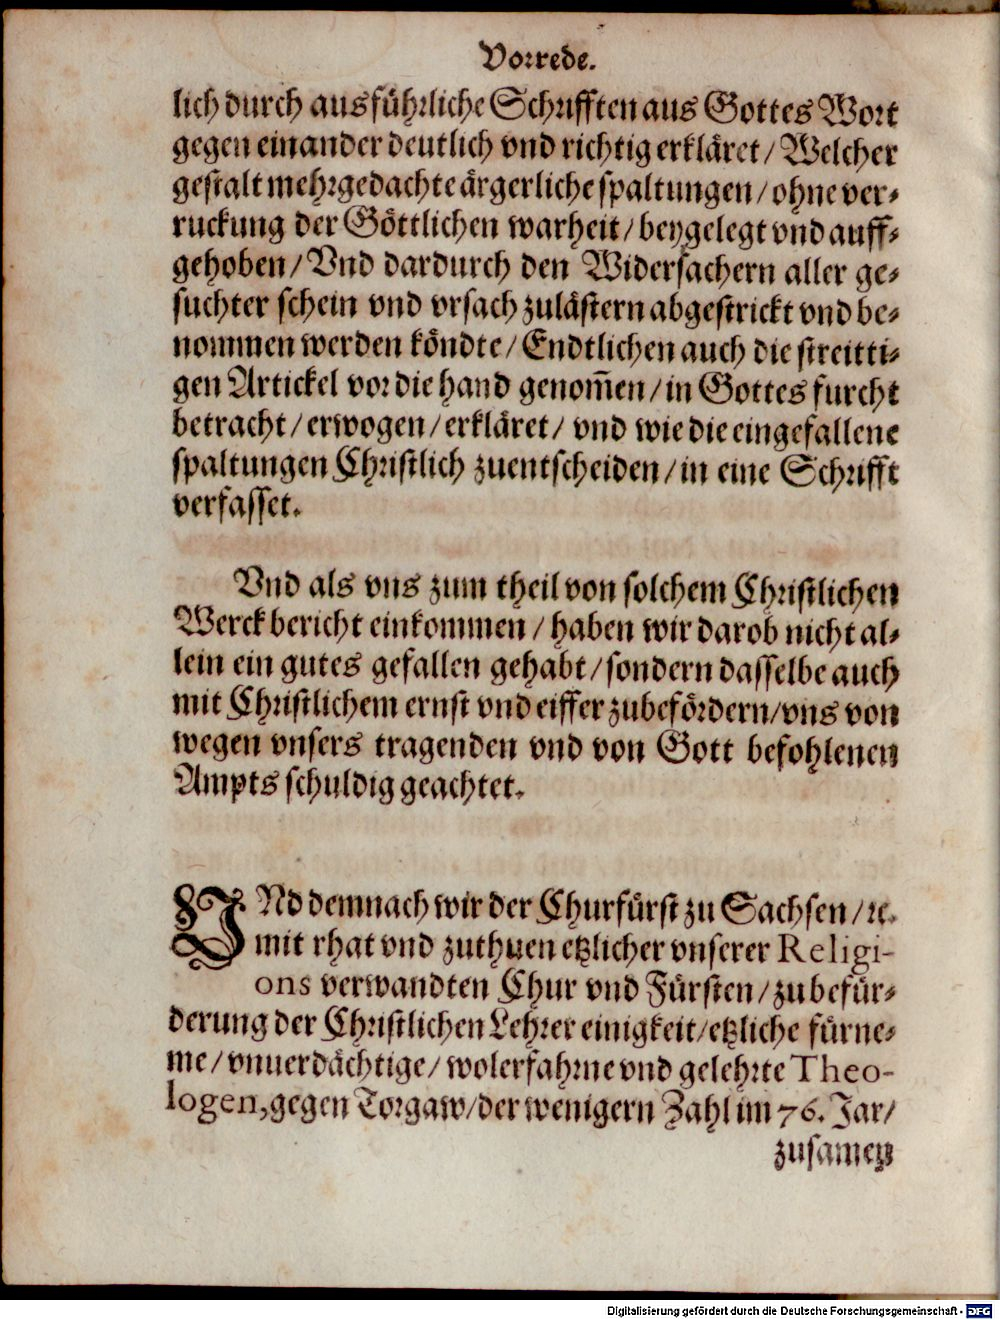 Vorrede.
lich durch ausführliche Schrifften aus Gottes Wort
gegen einander deutlich vnd richtig erkläret/ Welcher
gestalt mehrgedachte ärgerliche spaltungen/ ohne ver-
ruckung der Göttlichen warheit/ beygelegt vnd auff-
gehoben/ Vnd dardurch den Widersachern aller ge-
suchter schein vnd vrsach zulästern abgestrickt vnd be-
nommen werden köndte/ Endtlichen auch die streitti-
gen Artickel vor die hand genom̃en/ in Gottes furcht
betracht/ erwogen/ erkläret/ vnd wie die eingefallene
spaltungen Christlich zuentscheiden/ in eine Schrifft
verfasset.
Vnd als vns zum theil von solchem Christlichen
Werck bericht einkommen/ haben wir darob nicht al-
lein ein gutes gefallen gehabt/ sondern dasselbe auch
mit Christlichem ernst vnd eiffer zubefördern/ vns von
wegen vnsers tragenden vnd von Gott befohlenen
Ampts schuldig geachtet.
VNd demnach wir der Churfürst zu Sachsen/ ꝛc.
mit rhat vnd zuthuen etzlicher vnserer Religi-
ons verwandten Chur vnd Fürsten/ zu befür-
derung der Christlichen Lehrer einigkeit/ etzliche fürne-
me/ vnuerdächtige/ wolerfahrne vnd gelehrte Theo-
logen, gegen Torgaw/ der wenigern Zahl im 76. Jar/
zusamen
Digitalisierung gefördert durch die Deutsche Forschungsgemeinschaft - DFG